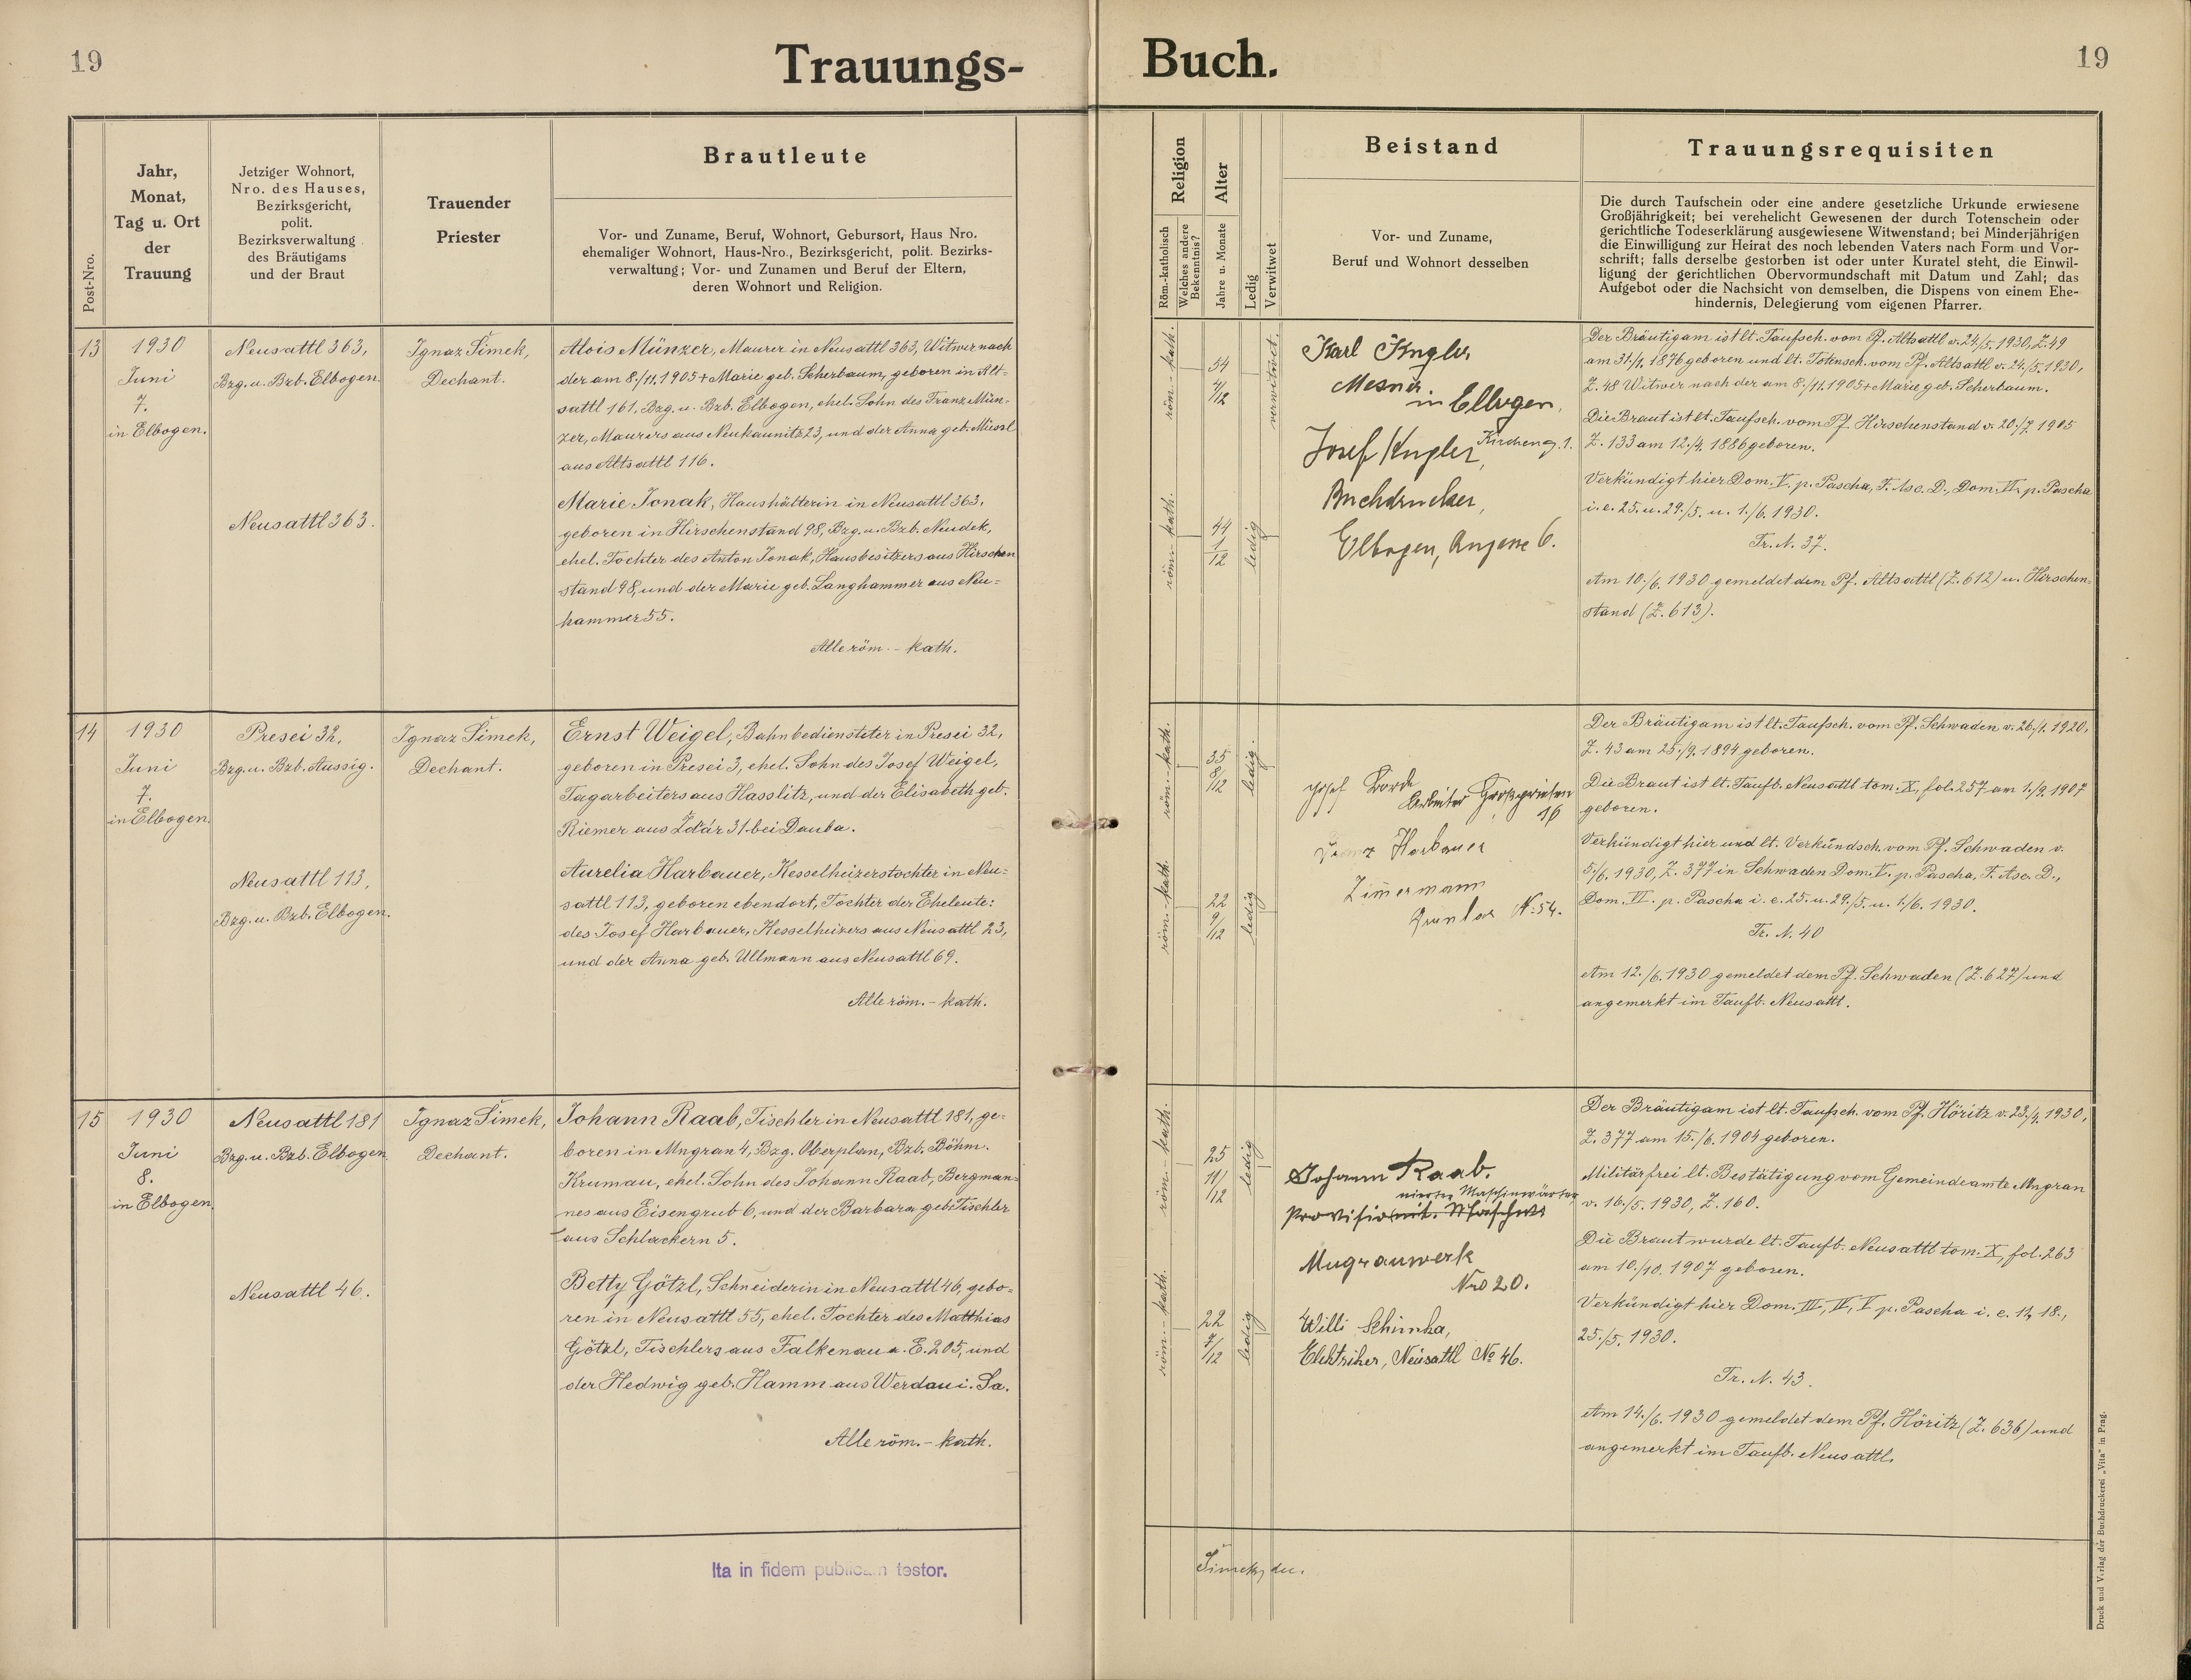 19
Trauungs-
Buch.
19
Post-Nro.
Jahr,
Monat,
Tag u. Ort
der
Trauung
Jetziger Wohnort,
Nro. des Hauses,
Bezirksgericht,
polit.
Bezirksverwaltung
des Bräutigams
und der Braut
Trauender
Priester
Brautleute
Vor- und Zuname, Beruf, Wohnort, Geburtsort, Haus Nro.
ehemaliger Wohnort, Haus-Nro., Bezirksgericht, polit. Bezirks-
verwaltung; Vor- und Zunamen und Beruf der Eltern,
deren Wohnort und Religion.
Religion
Röm.-katholisch
Welches andere
Bekenntnis?
Alter
Jahre u. Monate
Ledig
Verwitwet
Beistand
Vor- und Zuname,
Beruf und Wohnort desselben
Trauungsrequisiten
Die durch Taufschein oder eine andere gesetzliche Urkunde erwiesene
Großjährigkeit; bei verehelicht Gewesenen der durch Totenschein oder
gerichtliche Todeserklärung ausgewiesene Witwenstand; bei Minderjährigen
die Einwilligung zur Heirat des noch lebenden Vaters nach Form und Vor-
schrift; falls derselbe gestorben ist oder unter Kuratel steht, die Einwil-
ligung der gerichtlichen Obervormundschaft mit Datum und Zahl; das
Aufgebot oder die Nachsicht von demselben, die Dispens von einem Ehe-
hindernis, Delegierung vom eigenen Pfarrer.
13
1930
Juni
7.
in Elbogen.
Neusattl 363,
Bzg. u. Bzb. Elbogen.
Neusattl 363.
Ignaz Šimek,
Dechant.
Alois Münzer, Maurer in Neusattl 363, Witwer nach
der am 8./11. 1905 + Marie geb. Scherbaum, geboren in Alt-
sattl 161, Bzg. u. Bzb. Elbogen, ehel. Sohn des Franz Mün-
zer, Maurers aus Neukaunitz 23, und der Anna geb. Müssl
aus Altsattl 116.
Marie Jonak, Haushälterin in Neusattl 363,
geboren in Hirschenstand 98, Bzg. u. Bzb. Neudek,
ehel. Tochter des Anton Jonak, Hausbesitzers aus Hirschen
stand 98, und der Marie geb. Langhammer aus Neu-
hammer 55.
Alle röm.-kath.
röm.-kath.
54
4/12
verwitwet.
röm.-kath.
44
1/12
ledig
Karl Engler
Mesner
in Elbogen,
Kircheng. 1.
Josef Engler,
Buchdrucker,
Elbogen, Angasse 6.
Der Bräutigam ist lt. Taufsch. vom Pf. Altsattl v. 24./5. 1930, Z. 49
am 31./1. 1876 geboren und lt. Totensch. vom Pf. Altsattl v. 24./5. 1930,
Z. 48 Witwer nach der am 8./11. 1905 + Marie geb. Scherbaum.
Die Braut ist lt. Taufsch. vom Pf. Hirschenstand v. 20./7. 1905
Z. 133 am 12./4. 1886 geboren.
Verkündigt hier Dom. V. p. Pascha, F. Asc. D., Dom. VI. p. Pascha
i. e. 25. u. 29./5. u. 1./6. 1930.
Tr. N. 37.
Am 10./6. 1930 gemeldet dem Pf. Altsattl (Z. 612) u. Hirschen-
stand (Z. 613).
14
1930
Juni
7.
in Elbogen.
Presei 32,
Bzg. u. Bzb. Aussig.
Neusattl 113,
Bzg. u. Bzb. Elbogen.
Ignaz Šimek,
Dechant.
Ernst Weigel, Bahnbediensteter in Presei 32,
geboren in Presei 3, ehel. Sohn des Josef Weigel,
Tagarbeiters aus Hasslitz, und der Elisabeth geb.
Riemer aus Ždár 31 bei Dauba.
Aurelia Harbauer, Kesselheizerstochter in Neu-
sattl 113, geboren ebendort, Tochter der Eheleute:
des Josef Harbauer, Kesselheizers aus Neusattl 23,
und der Anna geb. Ullmann aus Neusattl 69.
Alle röm.-kath.
röm.-kath.
35
8/12
ledig.
röm.-kath.
22
9/12
ledig
Josef
Arbeiter Großpriesen
16
Harbauer
Zimermann
N: 54.
Der Bräutigam ist lt. Taufsch. vom Pf. Schwaden v. 26./1. 1920,
Z. 43 am 25./9. 1894 geboren.
Die Braut ist lt. Taufb. Neusattl tom. X, fol. 257 am 1./9. 1907
geboren.
Verkündigt hier und lt. Verkündsch. vom Pf. Schwaden v.
5./6. 1930, Z. 377 in Schwaden Dom. V. p. Pascha, F. Asc. D.,
Dom. VI. p. Pascha i. e. 25. u. 29./5. u. 1./6. 1930.
Tr. N. 40
Am 12./6. 1930 gemeldet dem Pf. Schwaden (Z. 627) und
angemerkt im Taufb. Neusattl.
15
1930
Juni
8.
in Elbogen.
Neusattl 181
Bzg. u. Bzb. Elbogen
Neusattl 46.
Ignaz Šimek,
Dechant.
Johann Raab, Tischler in Neusattl 181, ge-
boren in Mugran 4, Bzg. Oberplan, Bzb. Böhm.
Krumau, ehel. Sohn des Johann Raab, Bergman-
nes aus Eisengrub 6, und der Barbara geb. Tischler
aus Schlackern 5.
Betty Götzl, Schneiderin in Neusattl 46, gebo-
ren in Neusattl 55, ehel. Tochter des Matthias
Götzl, Tischlers aus Falkenau a. E. 205, und
der Hedwig geb. Hamm aus Werdau i. Sa.
Alle röm.-kath.
röm.-kath.
25
11/12
ledig
röm.-kath.
22
7/12
ledig
Johann Raab.
nierter Maschinwärter
Provisio
Mugrauwerk
Nro 20.
Willi Schimka,
Elektriker, Neusattl No 46.
Der Bräutigam ist lt. Taufsch. vom Pf. Höritz v. 23./4. 1930,
Z. 377 am 15./6. 1904 geboren.
Militärfrei lt. Bestätigung vom Gemeindeamte Mugran
v. 16./5. 1930, Z. 160.
Die Braut wurde lt. Taufb. Neusattl tom. X, fol. 263
am 10./10. 1907 geboren.
Verkündigt hier Dom. III, IV, V p. Pascha i. e. 11, 18.,
25./5. 1930.
Tr. N. 43.
Am 14./6. 1930 gemeldet dem Pf. Höritz (Z. 636) und
angemerkt im Taufb. Neusattl.
Ita in fidem publicam testor.
Šimek, de.
Druck und Verlag der Buchdruckerei „Vita" in Prag.